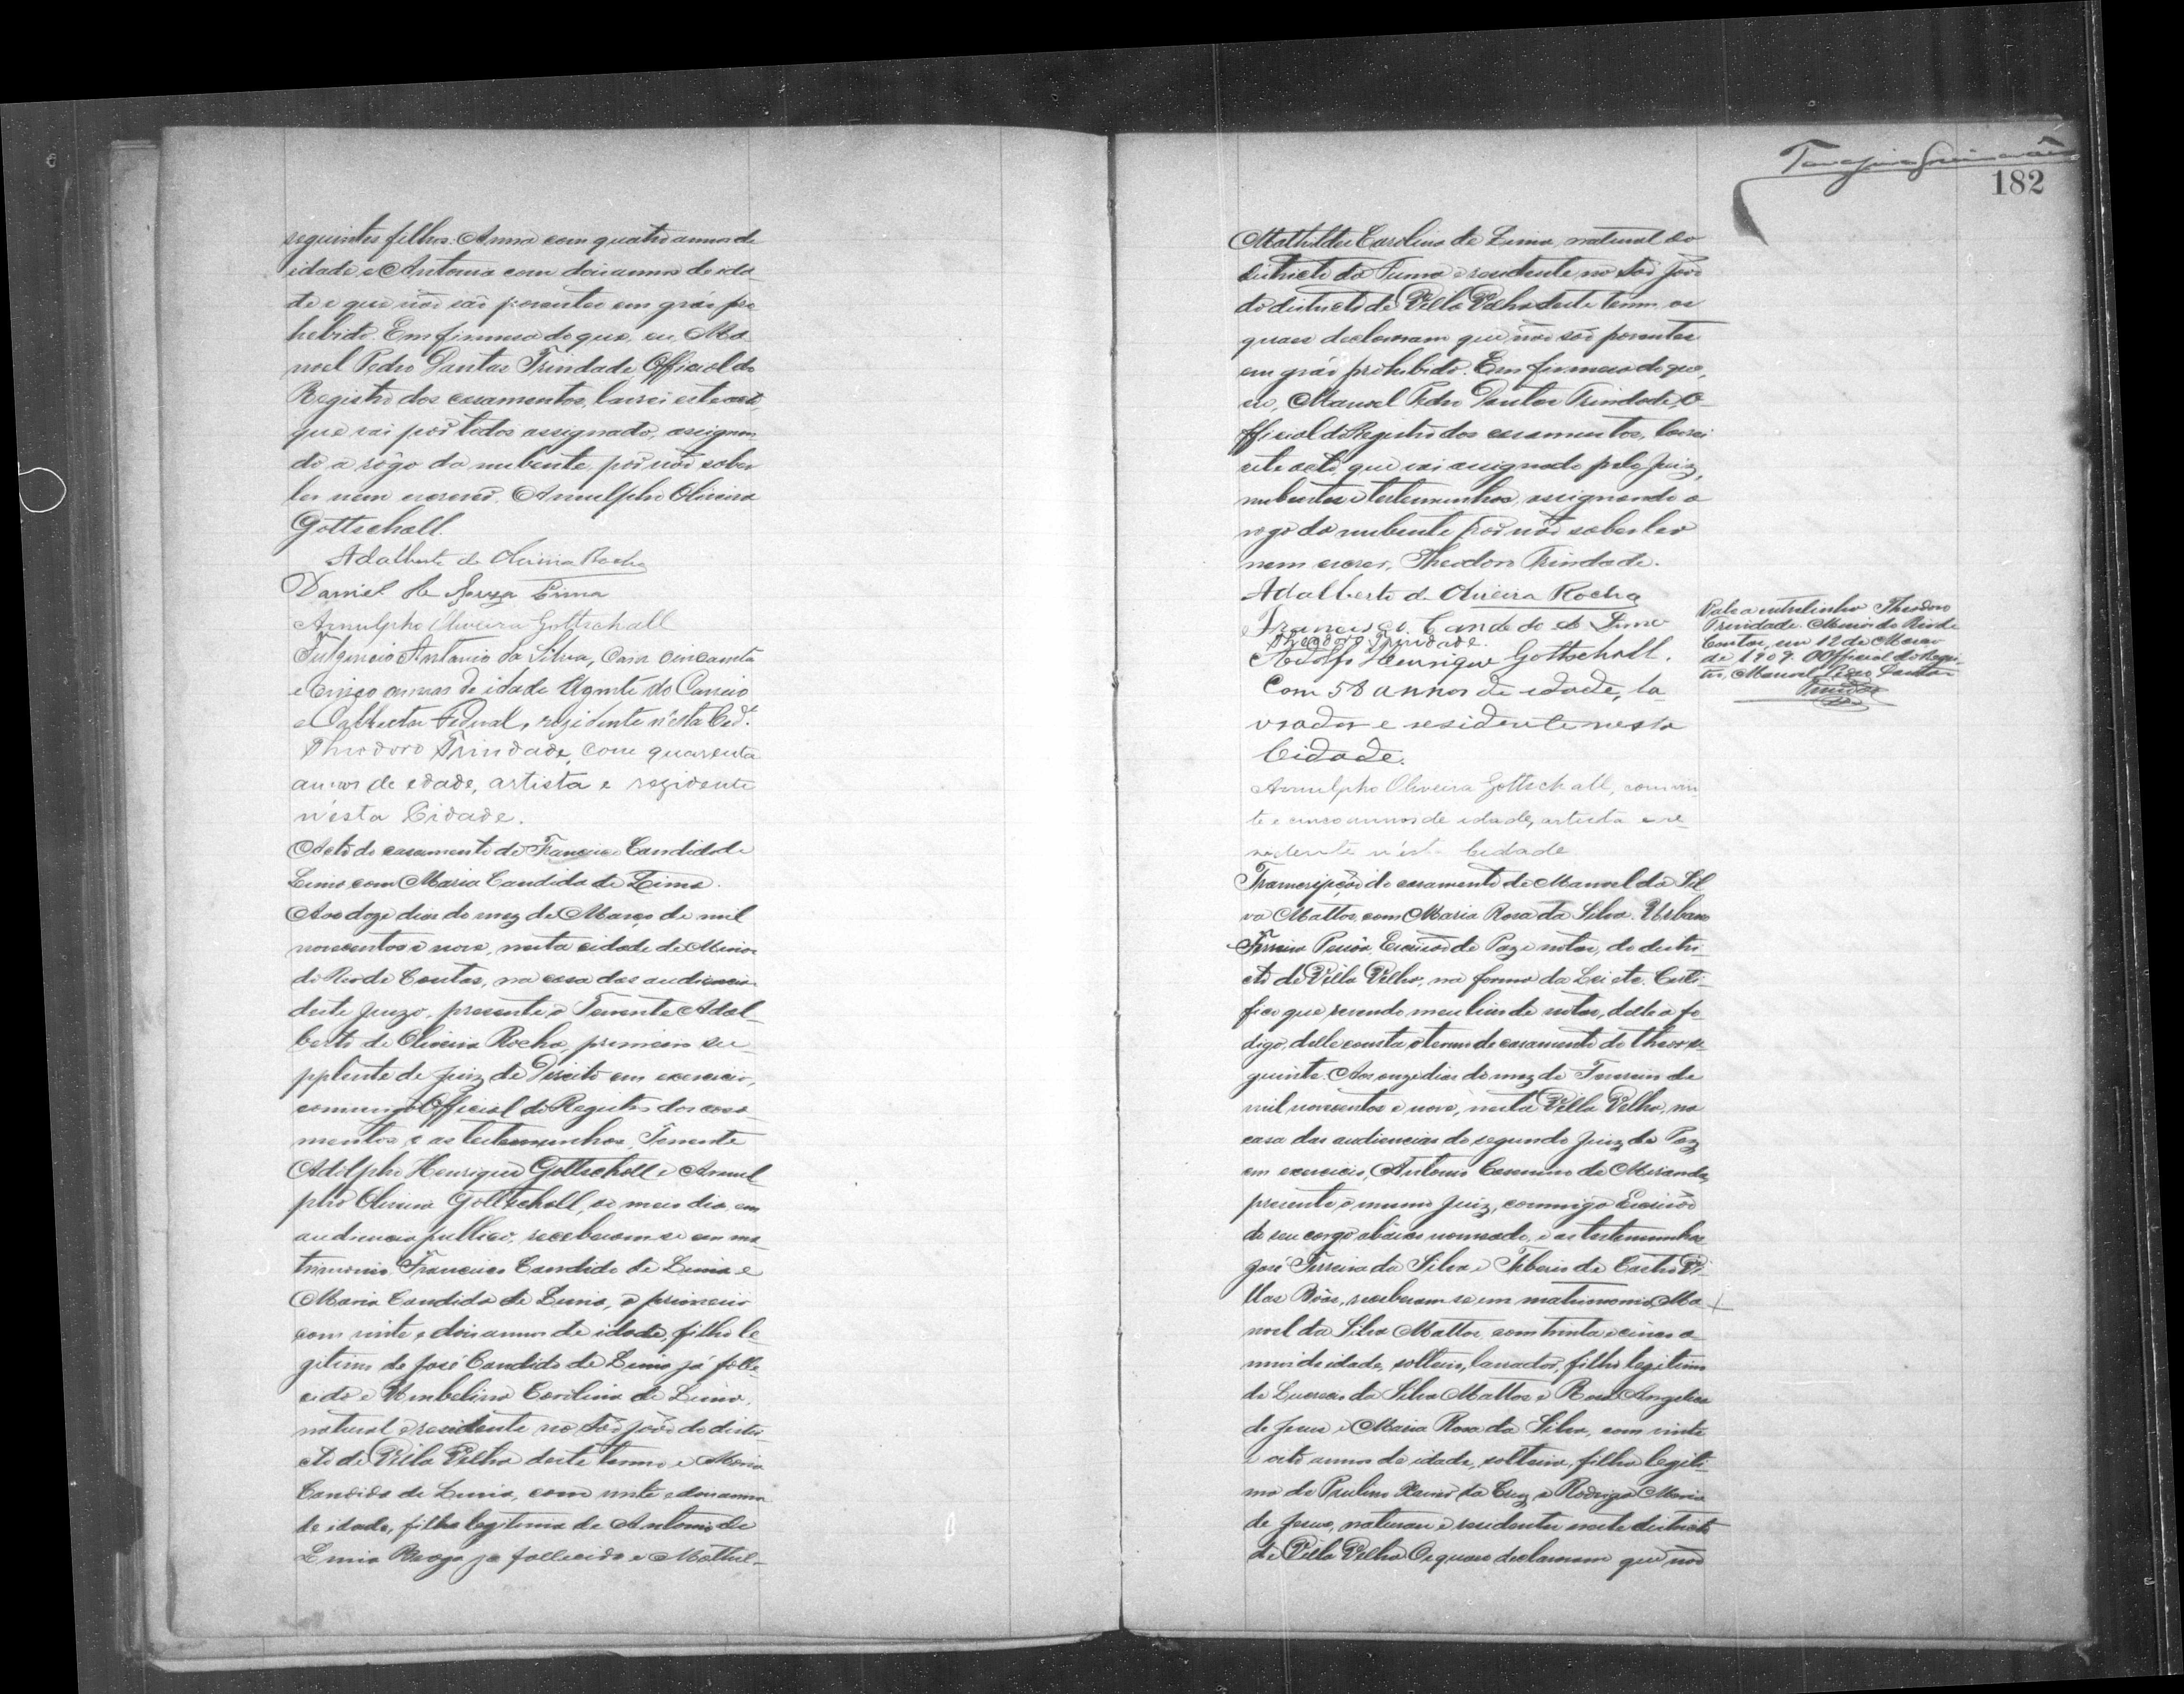 seguintes filhos: Anna com quatro annos de
idade e Antonia com dois annos de ida
de e que não são parentes em gráo pro
hibido. Em firmesa do que, eu, Ma
noel Pedro Dantas Trindade, Official do
Registro dos casamentos, lavrei este acto,
que vai por todos assignado, assignan
do a rôgo da nubente, por não saber
ler nem escrever, Arnulpho Oliveira
Gottschall.
Adalberto de Oliveira Rocha
Daniel de Souza Lima
Arnulpho Oliveira Gottschall
Fulgencio Antonio da Silva, com cincoenta
e cinco annos de idade Agente do Correio
e Collector Federal, rezidente n'esta Cid.e
Theodoro Trindade, com quarenta
annos de edade, artista e rezidente
n'esta Cidade.
Acto do casamento de Francisco Candido de
Lima com Maria Candida de Lima.
Aos doze dias do mez de Março de mil
novecentos e nove, nesta cidade de Minas
do Rio de Contas, na casa das audiencias
deste Juizo, presente o Tenente Adal-
berto de Oliveira Rocha, primeiro su-
pplente de Juiz de Direito em exercicio,
commigo Official do Registro dos casa
mentos e as testemunhas Tenente
Adolpho Henrique Gottschall e Arnul
pho Oliveira Gottschall, ao meio dia, em
audiencia publica, receberam-se em ma
trimonio Francisco Candido de Lima e
Maria Candida de Lima, o primeiro
com vinte e dois annos de idade, filho le
gitimo de José Candido de Lima já falle
cido e Umbelina Carolina de Lima,
natural e residente no São João do distri
cto de Villa Velha deste termo e Maria
Candida de Lima, com vinte e dois annos
de idade, filha legitima de Antonio de
Lima Braga já fallecido e Mathil-
Tanajura Guimarães
182
Mathildes Carolina de Lima, natural do
districto da Furna e residente no São João
do districto de Villa Velha deste termo, os
quaes declararam que não são parentes
em gráo prohibido. Em firmesa do que,
eu, Manoel Pedro Dantas Trindade, O-
fficial do Registro dos casamentos, lavrei
este acto, que vai assignado pelo Juiz,
nubentes e testemunhas, assignando a
rogo da nubente por não saber ler
nem escrever, Theodoro Trindade.
Adalberto de Oliveira Rocha
Francisco Candido de Lima
Theodoro Trindade.
Adolfo Henrique Gottschall.
Com 58 annos de idade, la
vrador e residente nesta
Cidade.
Arnulpho Oliveira Gottschall, com vin
te e cinco annos de idade, artista e re-
sidente n'esta Cidade
Vale a entrelinha Theodoro
Trindade. Minas do Rio de
Contas, em 12 de Março
de 1909. O Official do Regis-
tro, Manoel Pedro Dantas
Trindade
Transcripção do casamento de Manoel da Sil
va Mattos com Maria Rosa da Silva. Urbano
Ferreira Escrivão de Paz e notas, do distri-
cto de Villa Velha, na forma da Lei etc. Certi-
fico que revendo meu livro de notas, delle a fo
digo, delle consta o termo de casamento do theor se-
guinte. Aos onze dias do mez de Fevereiro de
mil novecentos e nove, nesta Villa Velha, na
casa das audiencias do segundo Juiz de Paz
em exercicio, Antonio de Miranda,
presente o mesmo Juiz, commigo Escrivão
de seu cargo abaixo nomeado, e as testemunhas
José Ferreira da Silva e Tiberio de Castro Vi-
llas Bôas, receberam-se em matrimonio, Ma
noel da Silva Mattos, com trinta e cinco a-
nnos de idade, solteiro, lavrador, filho legitimo
de Lucrecio da Silva Mattos e Rosa Angelica
de Jesus e Maria Rosa da Silva, com vinte
e oito annos de idade, solteira, filha legiti-
ma de Paulino da Cruz e Rodriga Maria
de Jesus, naturaes e residentes neste districto
de Villa Velha. Os quaes declararam que não